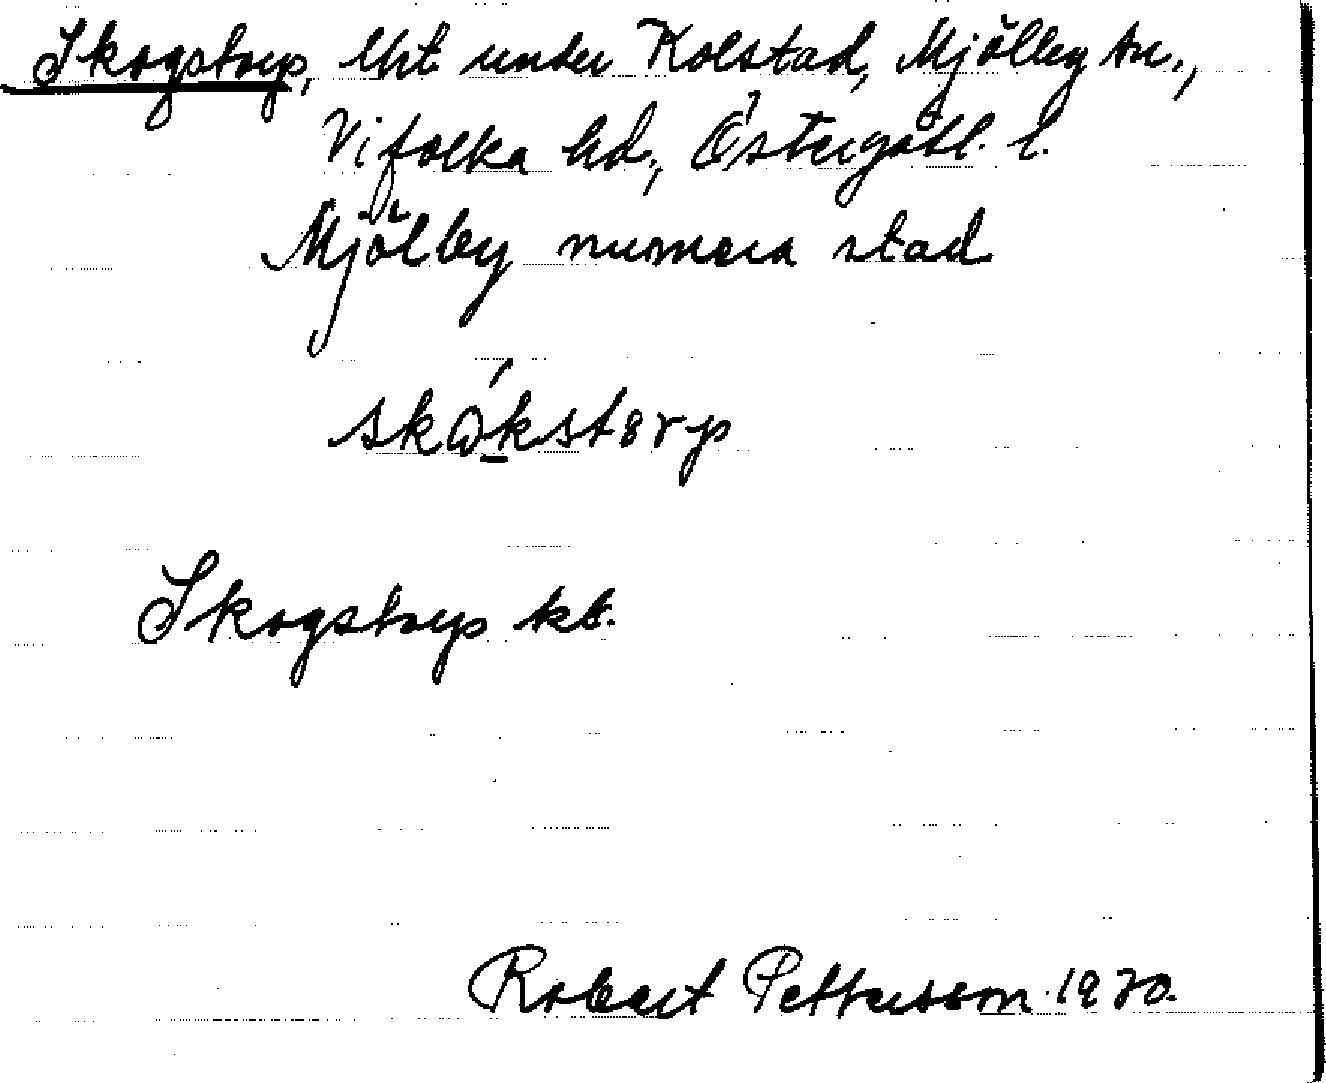 Skogstorp, lht under Kolstad, Mjölby sn.,
Vifolka hd., Östergötl. l.
Mjölby numera stad
skɷ́kstɞrp
Skogstorp kb.
Robert Pettersson 1970.